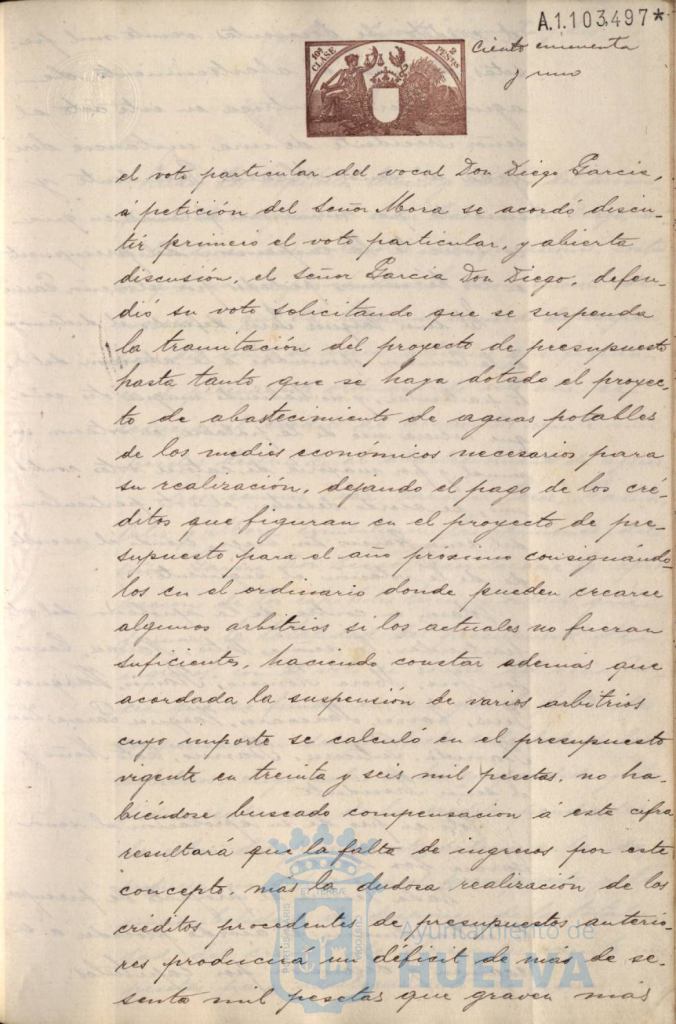 A.1.103,497*
10ª CLASE
2 PESETAS
Ciento cincuenta
y uno
el voto particular del vocal Don Diego Garcia,
á petición del Señor Mora se acordó discu-
tir primero el voto particular, y abierta
discusión, el Señor Garcia Don Diego, defen-
dió su voto solicitando que se suspenda
la tramitación del proyecto de presupuesto
hasta tanto que se haya dotado el proyec-
to de abastecimiento de aguas potables
de los medios económicos necesarios para
su realización, dejando el pago de los cré-
ditos que figuran en el proyecto de pre-
supuesto para el año próximo consignándo-
los en el ordinario donde pueden crearse
algunos arbitrios si los actuales no fueran
suficientes, haciendo constar además que
acordada la suspensión de varios arbitrios
cuyo importe se calculó en el presupuesto
vigente en treinta y seis mil pesetas, no ha-
biéndose buscado compensacion á esta cifra
resultará que la falta de ingresos por este
concepto, más la dudosa realización de los
créditos procedentes de presupuestos anterio-
res producirá un déficit de más de se-
senta mil pesetas que graven más
Ayuntamiento de
HUELVA